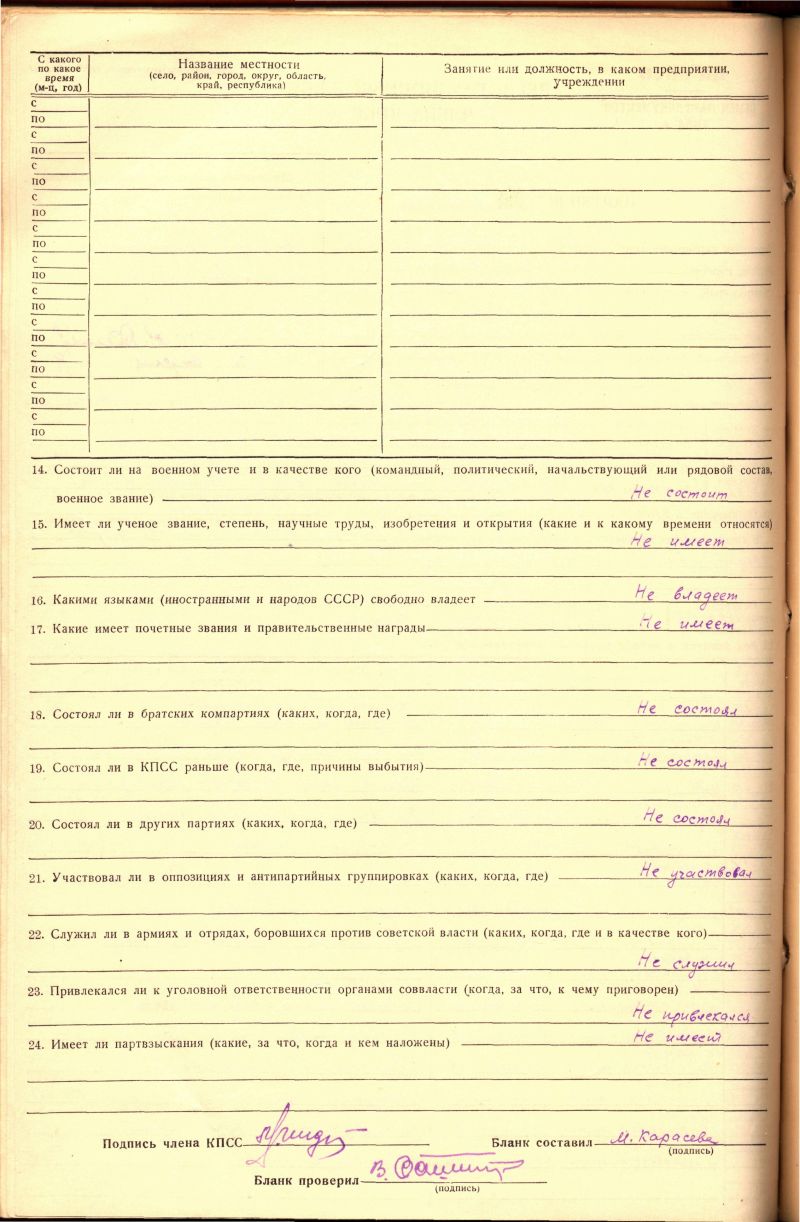 С какого по какое время (м-ц, год)
Название местности
(село, район, город, округ, область, край, республика)
Занятие или должность, в каком предприятии, учреждении
с
по
с
по
с
по
с
по
с
по
с
по
с
по
с
по
с
по
с
по
с
по
14. Состоит ли на военном учете и в качестве кого (командный, политический, начальствующий или рядовой состав,
военное звание) Не состоит
15. Имеет ли ученое звание, степень, научные труды, изобретения и открытия (какие и к какому времени относятся)
Не имеет
16. Какими языками (иностранными и народов СССР) свободно владеет Не владеет
17. Какие имеет почетные звания и правительственные награды Не имеет
18. Состоял ли в братских компартиях (каких, когда, где) Не состоял
19. Состоял ли в КПСС раньше (когда, где, причины выбытия) Не состоял
20. Состоял ли в других партиях (каких, когда, где) Не состоял
21. Участвовал ли в оппозициях и антипартийных группировках (каких, когда, где) Не участвовал
22. Служил ли в армиях и отрядах, боровшихся против советской власти (каких, когда, где и в качестве кого)
Не служил
23. Привлекался ли к уголовной ответственности органами соввласти (когда, за что, к чему приговорен)
Не привлекался
24. Имеет ли партвзыскания (какие, за что, когда и кем наложены) Не имеет
Подпись члена КПСС
Бланк составил М. Карасева
(подпись)
Бланк проверил В.
(подпись)